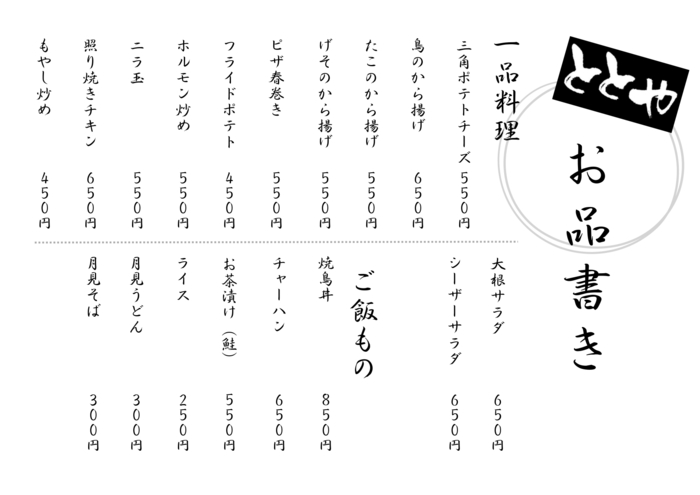 ととや
お品書き
一品料理
三角ポテトチーズ 550円
鳥のから揚げ 650円
たこのから揚げ 550円
げそのから揚げ 550円
ピザ春巻き 550円
フライドポテト 450円
ホルモン炒め 550円
ニラ玉 550円
照り焼きチキン 650円
もやし炒め 450円
大根サラダ 650円
シーザーサラダ 650円
ご飯もの
焼鳥丼 850円
チャーハン 650円
お茶漬け（鮭） 550円
ライス 250円
月見うどん 300円
月見そば 300円